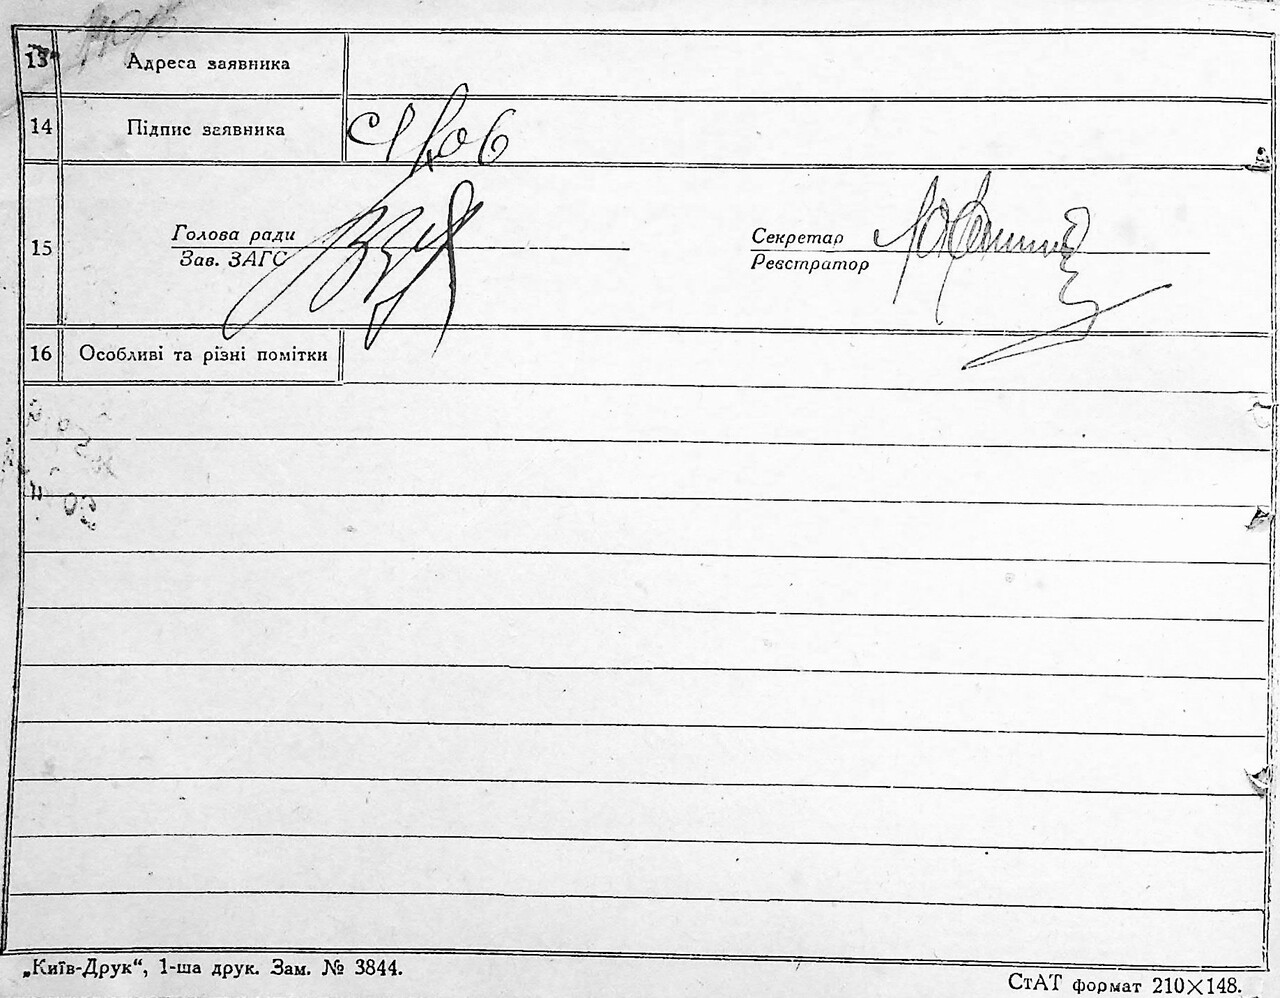 13 Адреса заявника
14 Підпис заявника
15 Голова ради
Зав. ЗАГС
Секретар
Реєстратор
16 Особливі та різні помітки
„Київ-Друк“, 1-ша друк. Зам. № 3844.
СтАТ формат 210×148.